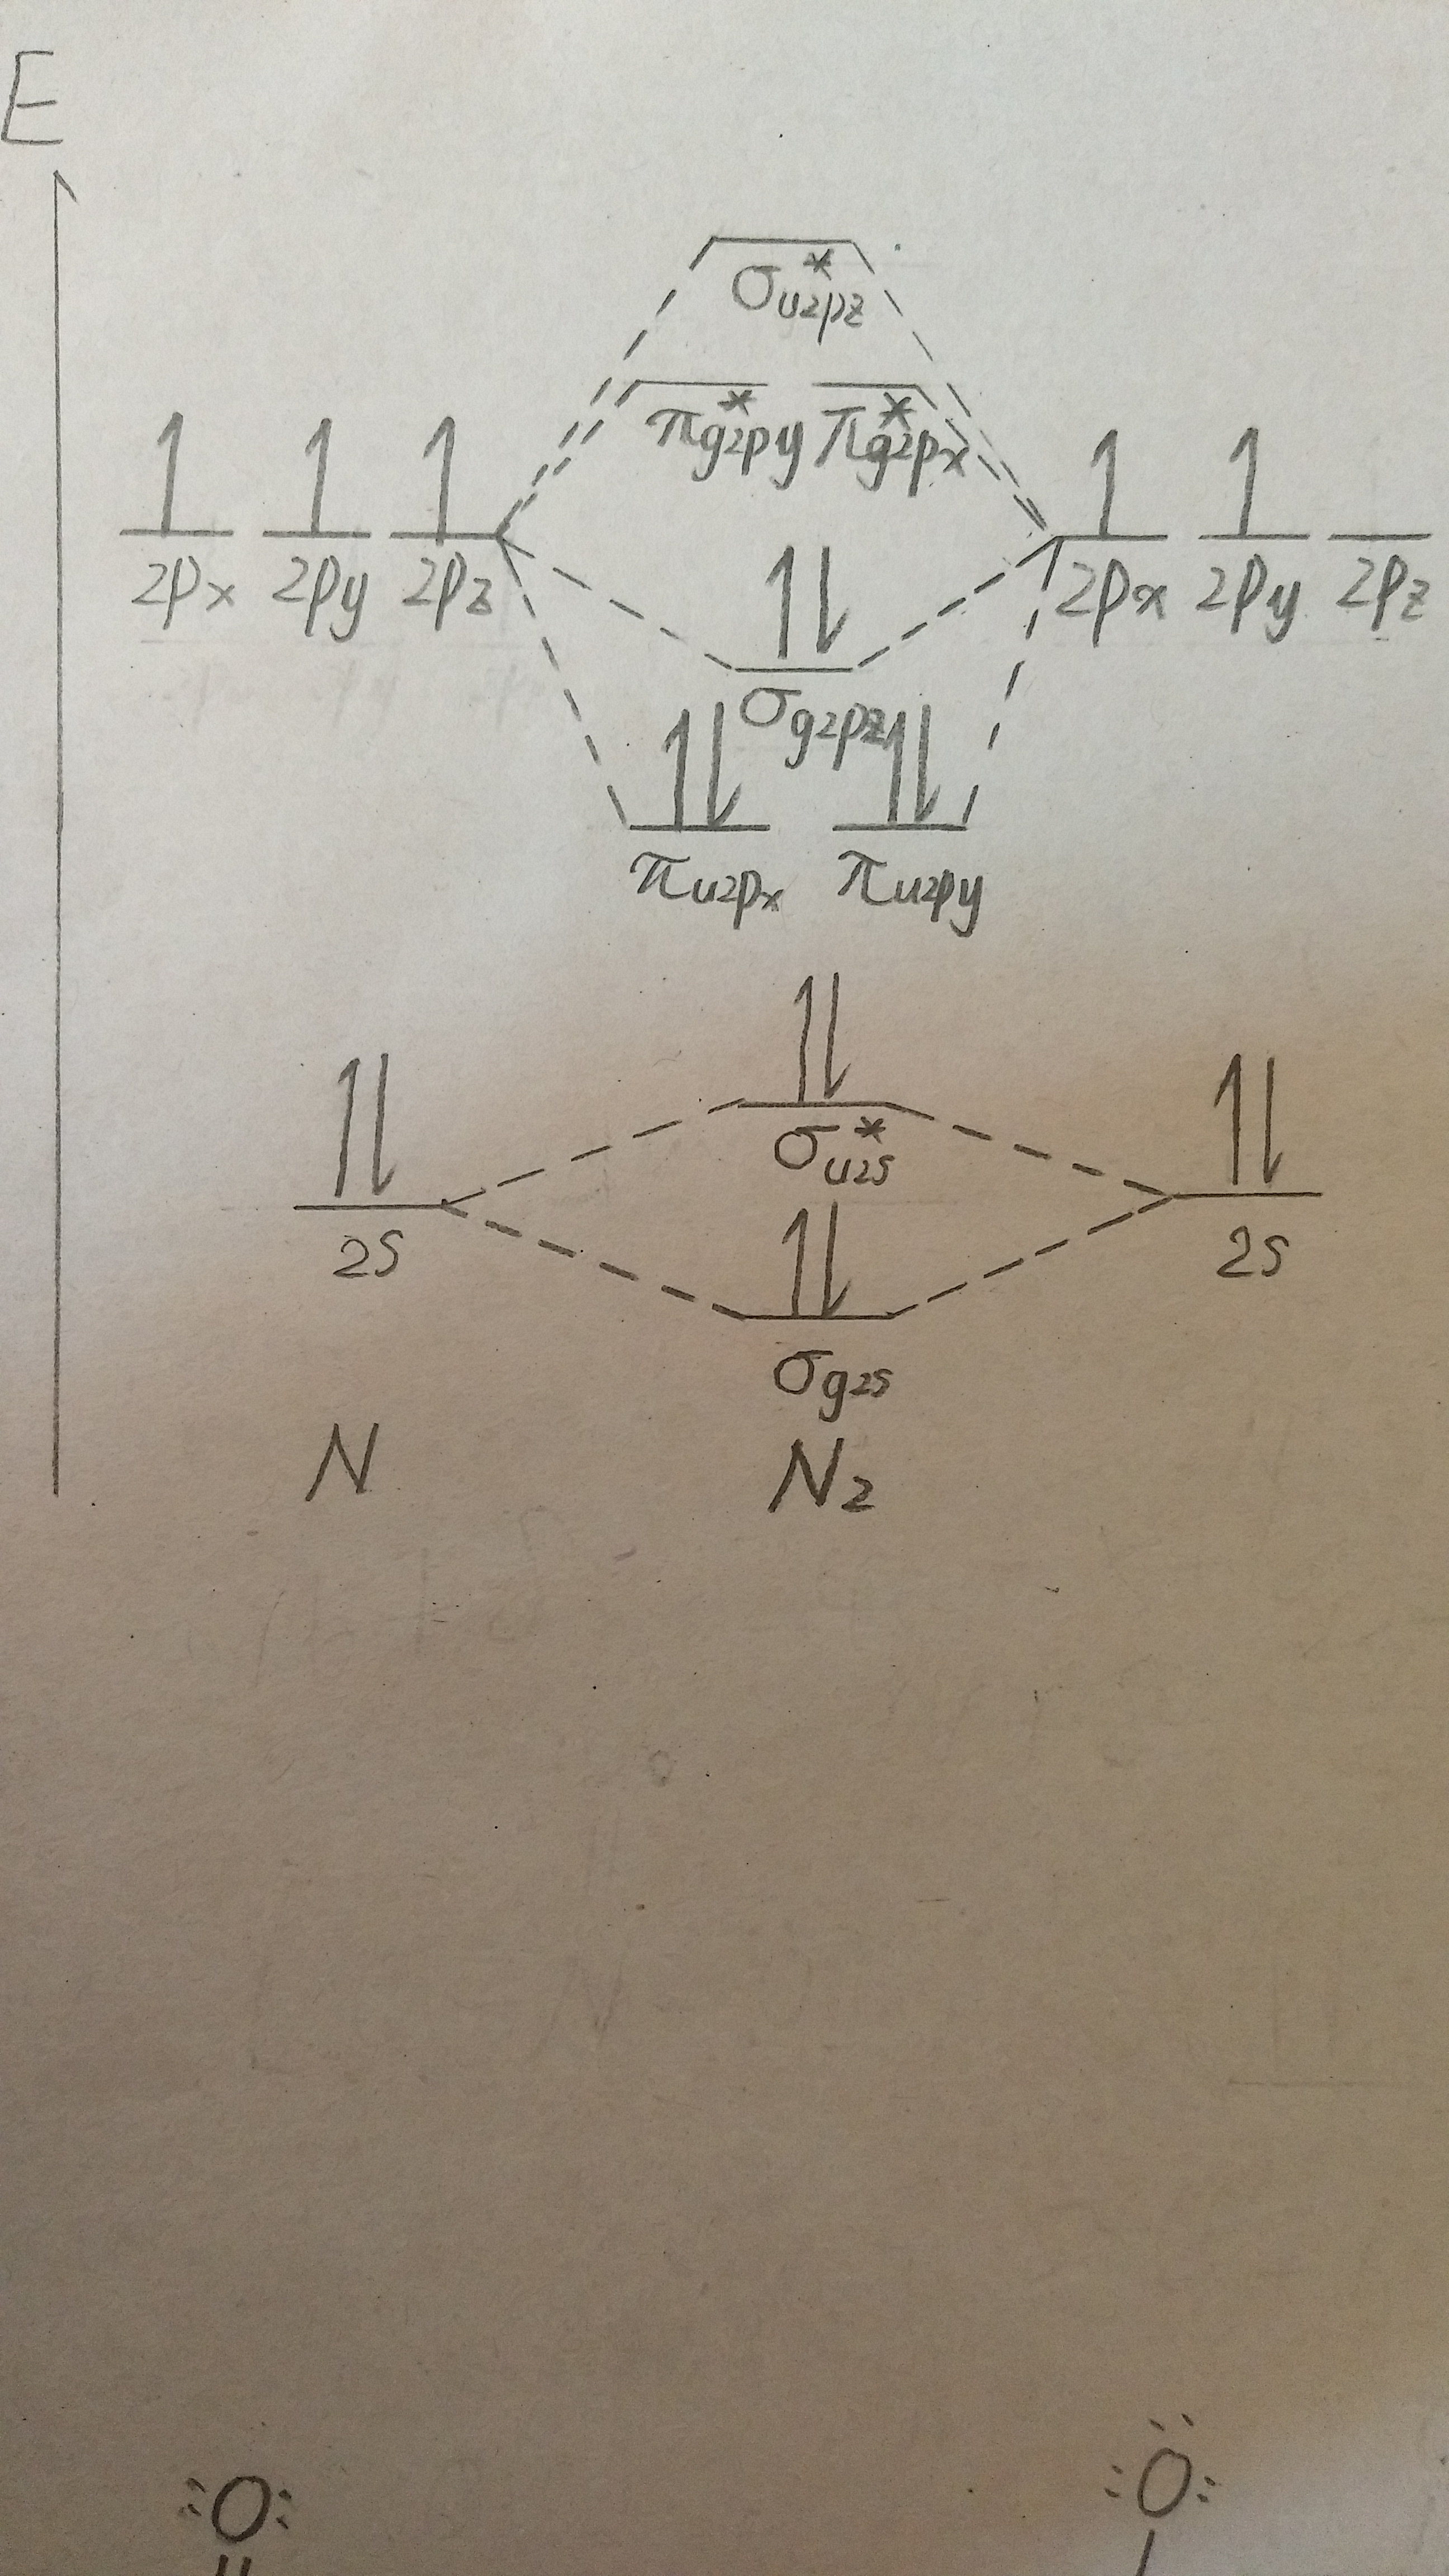 E
σ*u2pz
π*g2py π*g2px
2px 2py 2pz 2px 2py 2pz
σg2pz
πu2px πu2py
σ*u2s
2s 2s
σg2s
N N2
:O: :Ö: